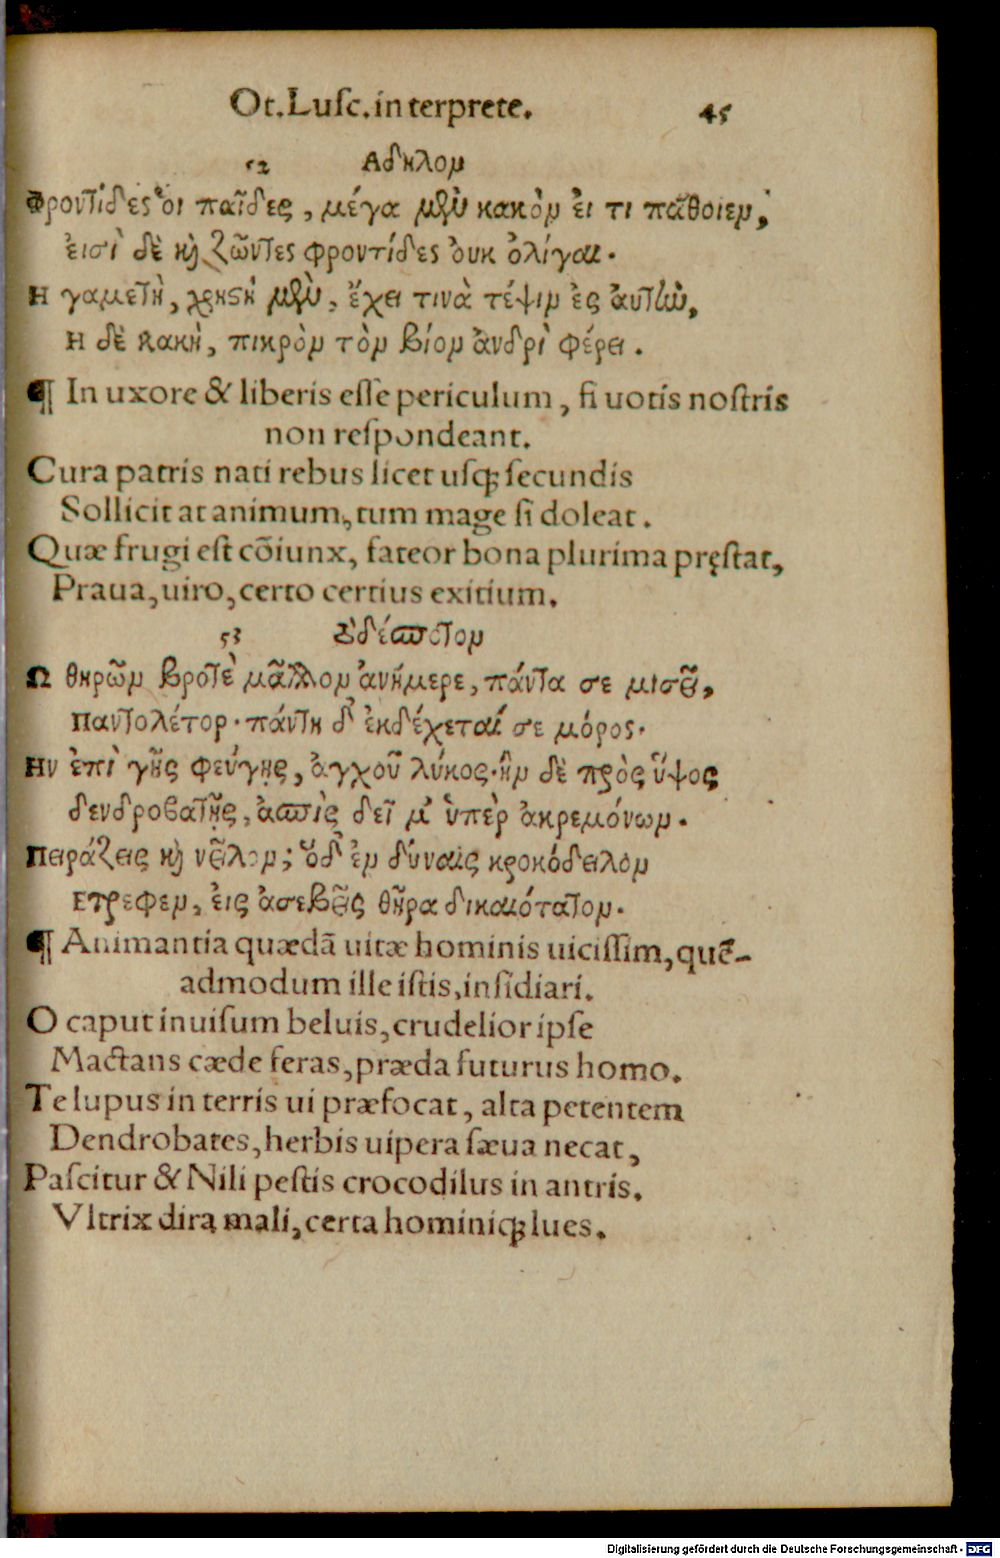 Ot. Luſc. in terprete. 45
52 Αδηλον
Φροντίδες ὁι παῖδες, μέγα μὲν κακὸν ἐι τι πάθοιεν,
ἐισὶ δὲ καὶ ζῶντες φροντίδες ὀυκ ὀλίγαι.
Η γαμετὴ, χρηστὴ μὲν, ἔχει τινὰ τέψιν ἐς ἀυτὴν,
Η δὲ κακὴ, πικρὸν τὸν βίον ἀνδρὶ φέρει.
¶ In uxore & liberis eſſe periculum, ſi uotis noſtris
non reſpondeant.
Cura patris nati rebus licet uſq; ſecundis
Sollicit at animum, tum mage ſi doleat.
Quæ frugi eſt cōiunx, fateor bona plurima pręſtat,
Praua, uiro, certo certius exitium.
53 Ἀδέσποτον
Ω θηρῶν βροτὲ μᾶλλον ἀνήμερε, πάντα σε μισεῖ,
Παντολέτορ· πάντη δ' ἐκδέχεταί σε μόρος.
Ην ἐπὶ γῆς φεύγῃς, ἀγχοῦ λύκος· ἢν δὲ πρὸς ὕψος
δενδροβατῇς, ἀσπὶς δεῖ μ' ὑπὲρ ἀκρεμόνων.
Πειράζεις καὶ νεῖλον; ὅδ' ἐν δύναις κροκόδειλον
Ετρεφεν, ἐις ἀσεβεῖς θῆρα δικαιότατον.
¶ Animantia quædā uitæ hominis uiciſſim, quē-
admodum ille iſtis, inſidiari.
O caput inuiſum beluis, crudelior ipſe
Mactans cæde feras, præda futurus homo.
Te lupus in terris ui præfocat, alta petentem
Dendrobates, herbis uipera ſæua necat,
Paſcitur & Nili peſtis crocodilus in antris.
Vltrix dira mali, certa hominiq; lues.
Digitalisierung gefördert durch die Deutsche Forschungsgemeinschaft - DFG